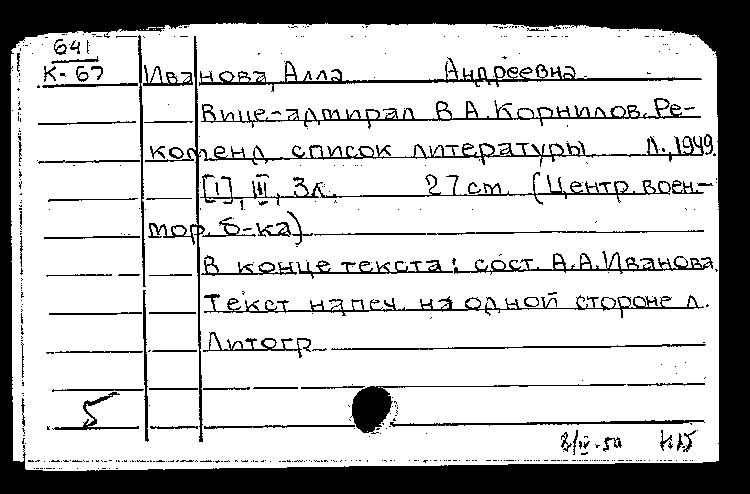 641
К-67
Иванова, Алла Андреевна
Вице-адмирал В.А.Корнилов. Ре-
коменд. список литературы Л., 1949.
[I], III, 3л. 27 cm. (Центр. воен.-
мор. б-ка)
В конце текста: сост. А.А.Иванова.
Текст напеч. на одной стороне л.
Литогр.
5
8/IV-50